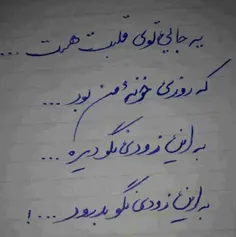 یه جایی توی قلبت هست ...
که روزی خونهٔ من بود ...
به این زودی نگو دیره ...
به این زودی نگو بدرود ... !